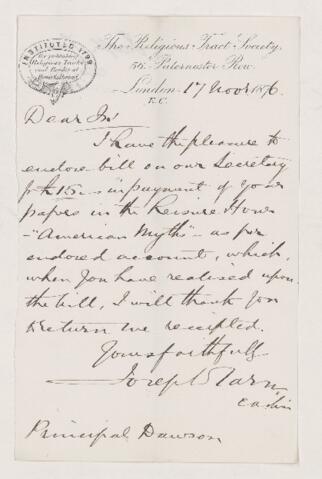 INSTITUTED 1799
for publishing
Religious Tracts
and Books at
Home & Abroad
The Religious Tract Society,
56, Paternoster Row,
London 17 Novr 1876.
E.C.
Dear Sir
I have the pleasure to
endorse bill on our Secretary
for £15 in payment of your
papers in the Leisure Hour
"American Myths" as per
endorsed account, which,
when you have realised upon
the bill, I will thank you
to return me receipted.
Yours faithfully
Joseph Tarn
Cashier
Principal Dawson